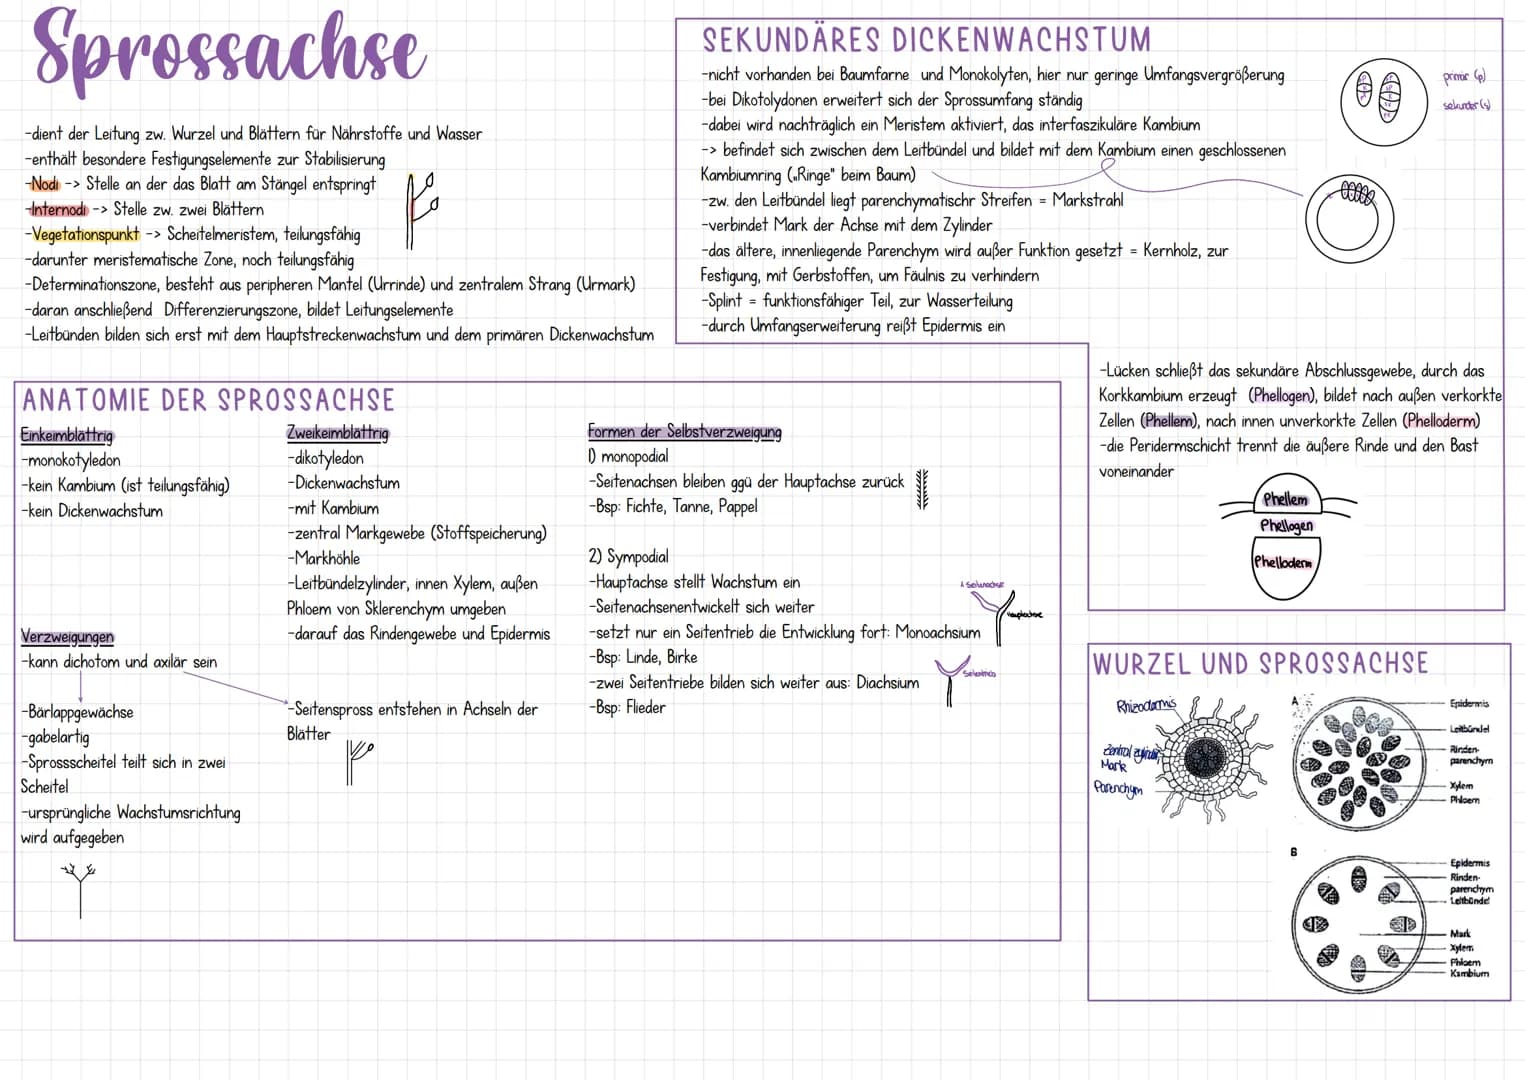 Sprossachse
-dient der Leitung zw. Wurzel und Blättern für Nährstoffe und Wasser
-enthält besondere Festigungselemente zur Stabilisierung
-Nodi -> Stelle an der das Blatt am Stängel entspringt
-Internodi -> Stelle zw. zwei Blättern
-Vegetationspunkt -> Scheitelmeristem, teilungsfähig
-darunter meristematische Zone, noch teilungsfähig
-Determinationszone, besteht aus peripheren Mantel (Urrinde) und zentralem Strang (Urmark)
-daran anschließend Differenzierungszone, bildet Leitungselemente
-Leitbünden bilden sich erst mit dem Hauptstreckenwachstum und dem primären Dickenwachstum
SEKUNDÄRES DICKENWACHSTUM
-nicht vorhanden bei Baumfarne und Monokolyten, hier nur geringe Umfangsvergrößerung
-bei Dikotolydonen erweitert sich der Sprossumfang ständig
-dabei wird nachträglich ein Meristem aktiviert, das interfaszikuläre Kambium
-> befindet sich zwischen dem Leitbündel und bildet mit dem Kambium einen geschlossenen
Kambiumring („Ringe" beim Baum)
-zw. den Leitbündel liegt parenchymatischr Streifen = Markstrahl
-verbindet Mark der Achse mit dem Zylinder
-das ältere, innenliegende Parenchym wird außer Funktion gesetzt = Kernholz, zur
Festigung, mit Gerbstoffen, um Fäulnis zu verhindern
-Splint = funktionsfähiger Teil, zur Wasserteilung
-durch Umfangserweiterung reißt Epidermis ein
primär (p)
sekundär (s)
-Lücken schließt das sekundäre Abschlussgewebe, durch das
Korkkambium erzeugt (Phellogen), bildet nach außen verkorkte
Zellen (Phellem), nach innen unverkorkte Zellen (Phelloderm)
-die Peridermschicht trennt die äußere Rinde und den Bast
voneinander
Phellem
Phellogen
Phelloderm
ANATOMIE DER SPROSSACHSE
Einkeimblättrig
-monokotyledon
-kein Kambium (ist teilungsfähig)
-kein Dickenwachstum
Verzweigungen
-kann dichotom und axilär sein
-Bärlappgewächse
-gabelartig
-Sprossscheitel teilt sich in zwei
Scheitel
-ursprüngliche Wachstumsrichtung
wird aufgegeben
Zweikeimblättrig
-dikotyledon
-Dickenwachstum
-mit Kambium
-zentral Markgewebe (Stoffspeicherung)
-Markhöhle
-Leitbündelzylinder, innen Xylem, außen
Phloem von Sklerenchym umgeben
-darauf das Rindengewebe und Epidermis
-Seitenspross entstehen in Achseln der
Blätter
Formen der Selbstverzweigung
1) monopodial
-Seitenachsen bleiben ggü der Hauptachse zurück
-Bsp: Fichte, Tanne, Pappel
2) Sympodial
-Hauptachse stellt Wachstum ein
-Seitenachsenentwickelt sich weiter
-setzt nur ein Seitentrieb die Entwicklung fort: Monoachsium
-Bsp: Linde, Birke
-zwei Seitentriebe bilden sich weiter aus: Diachsium
-Bsp: Flieder
Hauptachse
WURZEL UND SPROSSACHSE
Rhizodermis
Zentralzylinder,
Mark
Parenchym
A
Epidermis
Leitbündel
Rinden-
parenchym
Xylem
Phloem
B
Epidermis
Rinden-
parenchym
Leitbündel
Mark
Xylem
Phloem
Kambium